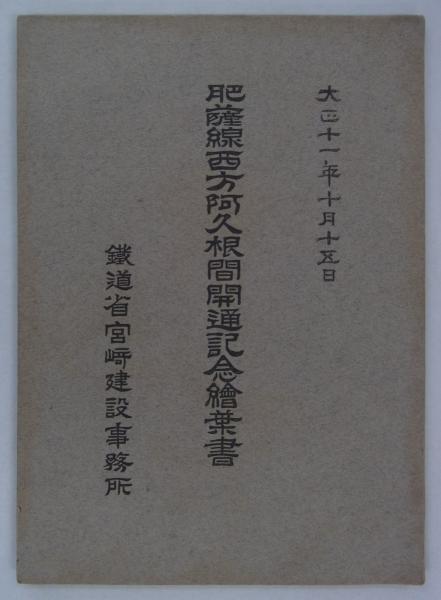 大正十一年十月十五日
肥薩線西方阿久根間開通記念繪葉書
鐵道省宮﨑建設事務所